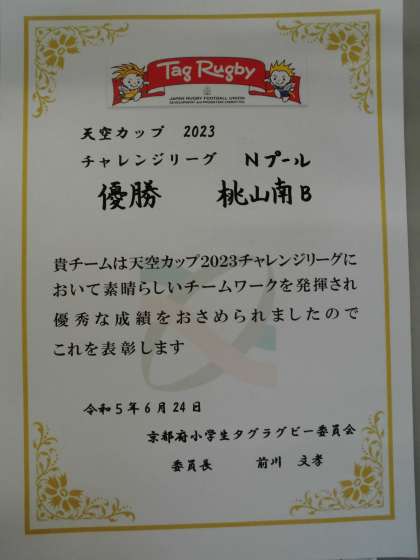 Tag Rugby
JAPAN RUGBY FOOTBALL UNION
DEVELOPMENT and PROMOTION COMMITTEE
天空カップ 2023
チャレンジリーグ Nプール
優勝 桃山南B
貴チームは天空カップ2023チャレンジリーグに
おいて素晴らしいチームワークを発揮され
優秀な成績をおさめられましたので
これを表彰します
令和5年6月24日
京都府小学生タグラグビー委員会
委員長 前川 文孝